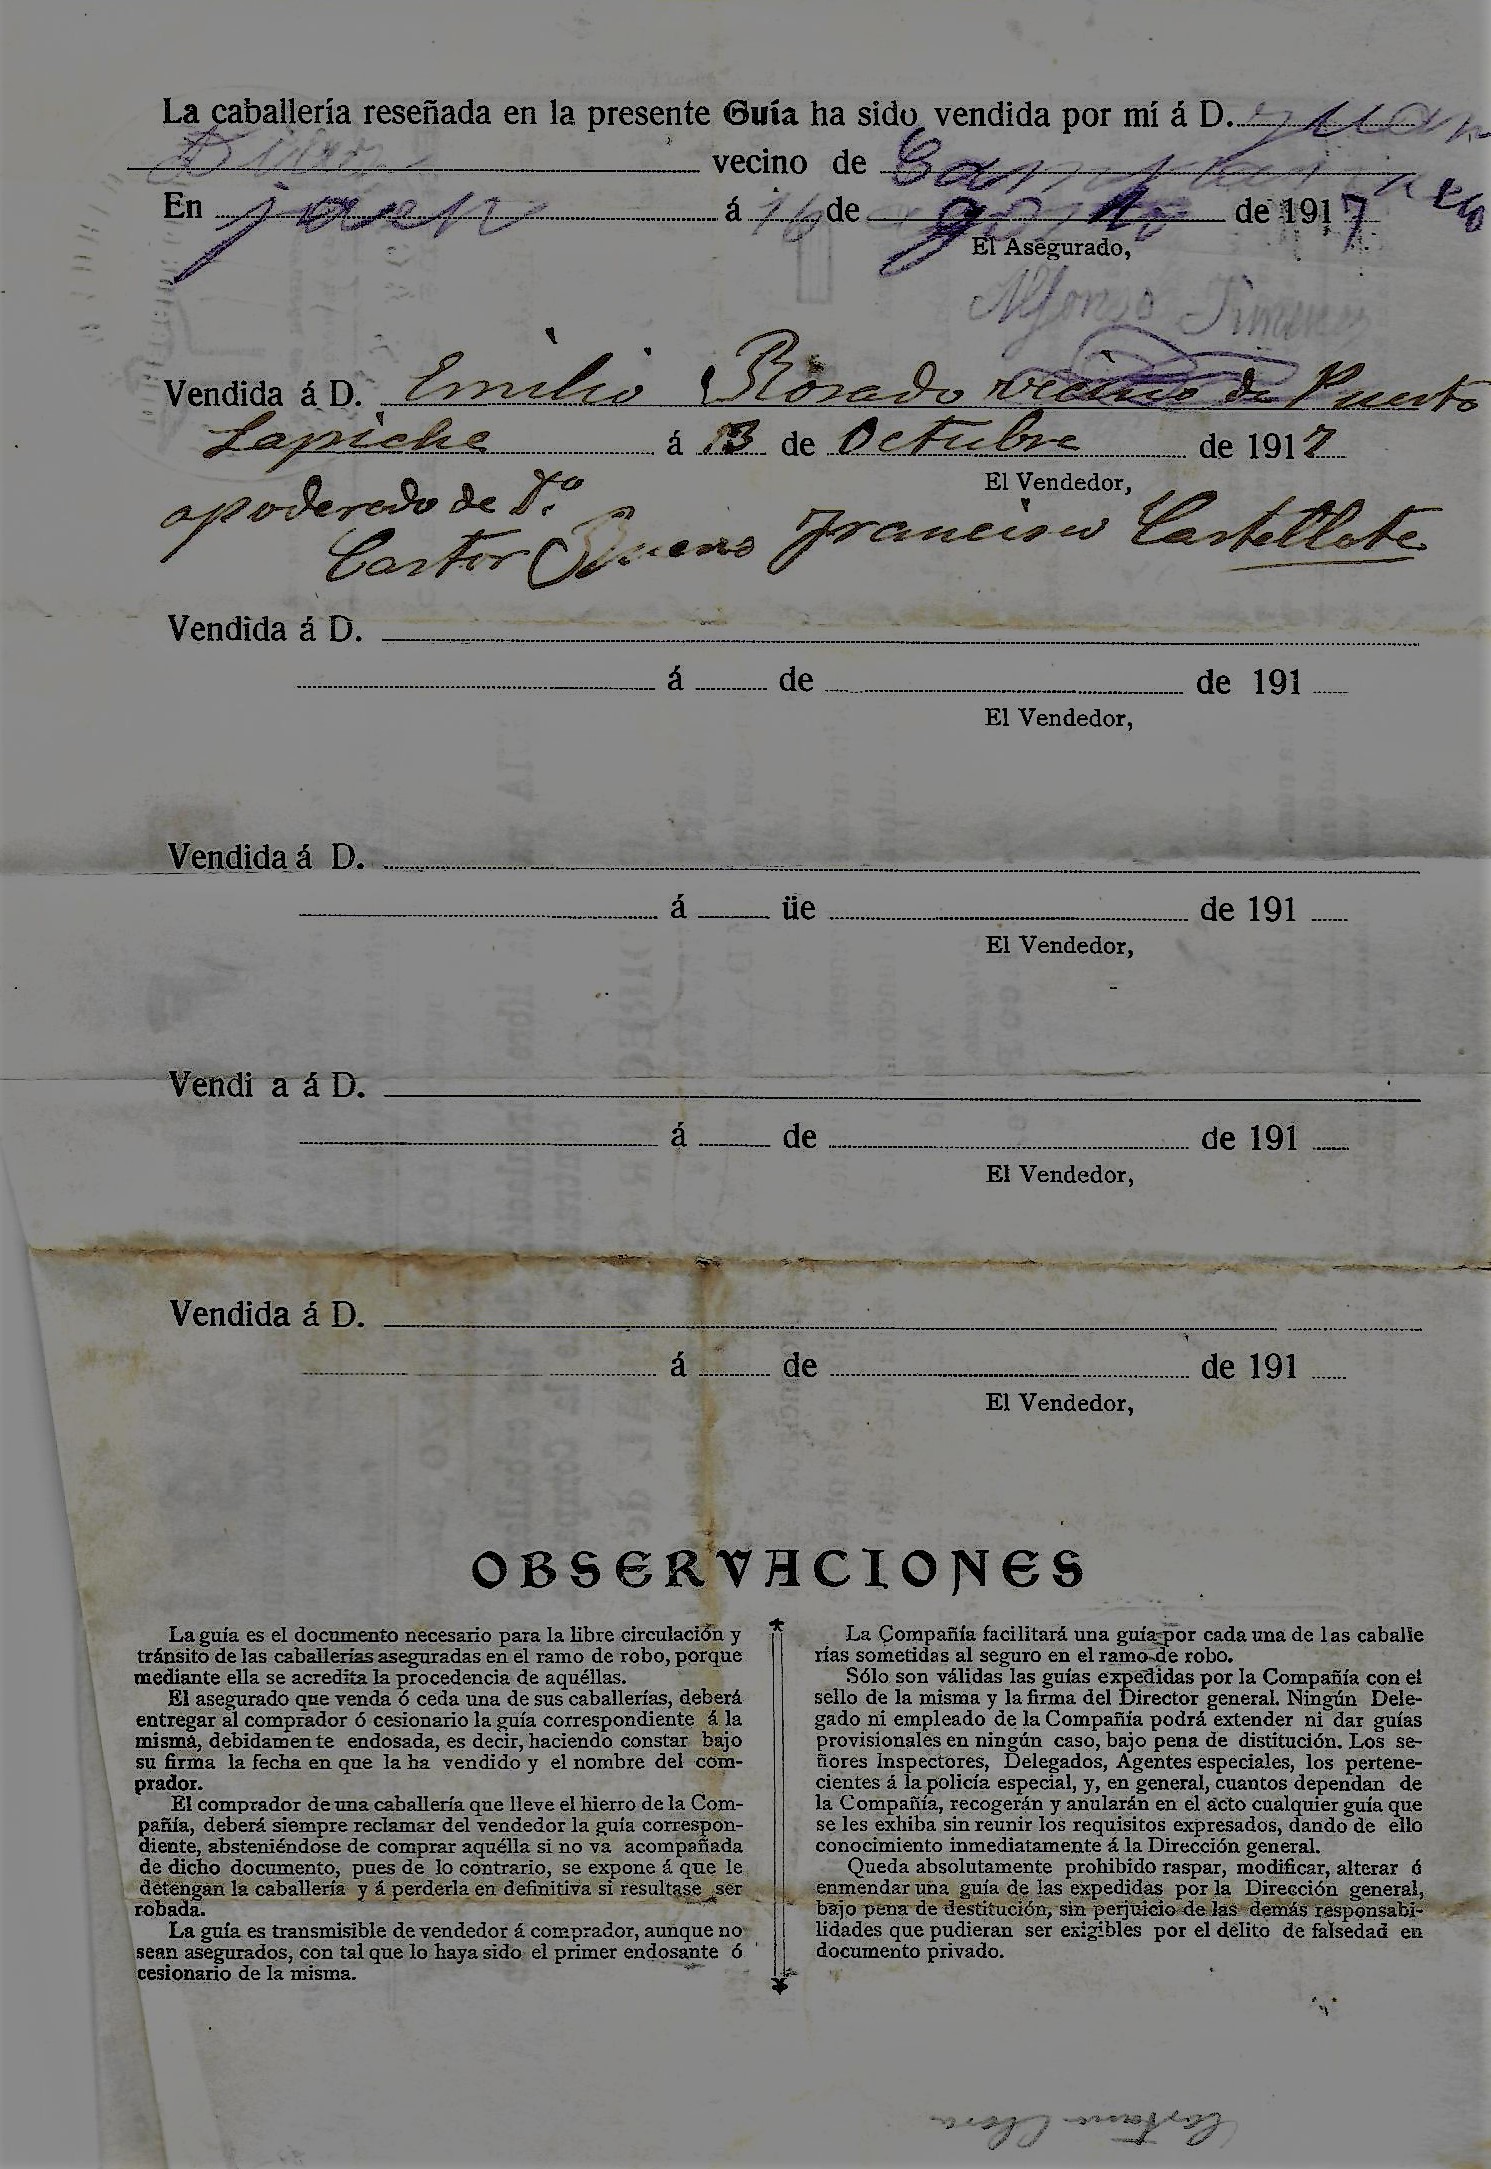 La caballería reseñada en la presente Guía ha sido vendida por mí á D. Juan
vecino de
En jaen á 16 de agosto de 1917
El Asegurado,
Alfonso Jimenez
Vendida á D. Emilio Rosado vecino de Puerto
Lapiche á 13 de Octubre de 1917
El Vendedor,
apoderado de Dº
Castor Bueno Francisco Castellote
Vendida á D.
á de de 191
El Vendedor,
Vendida á D.
á üe de 191
El Vendedor,
Vendi a á D.
á de de 191
El Vendedor,
Vendida á D.
á de de 191
El Vendedor,
OBSERVACIONES
La guía es el documento necesario para la libre circulación y
tránsito de las caballerías aseguradas en el ramo de robo, porque
mediante ella se acredita la procedencia de aquéllas.
El asegurado que venda ó ceda una de sus caballerías, deberá
entregar al comprador ó cesionario la guía correspondiente á la
misma, debidamente endosada, es decir, haciendo constar bajo
su firma la fecha en que la ha vendido y el nombre del com-
prador.
El comprador de una caballería que lleve el hierro de la Com-
pañía, deberá siempre reclamar del vendedor la guía correspon-
diente, absteniéndose de comprar aquélla si no va acompañada
de dicho documento, pues de lo contrario, se expone á que le
detengan la caballería y á perderla en definitiva si resultase ser
robada.
La guía es transmisible de vendedor á comprador, aunque no
sean asegurados, con tal que lo haya sido el primer endosante ó
cesionario de la misma.
La Compañía facilitará una guía por cada una de las caballe
rías sometidas al seguro en el ramo de robo.
Sólo son válidas las guías expedidas por la Compañía con el
sello de la misma y la firma del Director general. Ningún Dele-
gado ni empleado de la Compañía podrá extender ni dar guías
provisionales en ningún caso, bajo pena de distitución. Los se-
ñores Inspectores, Delegados, Agentes especiales, los pertene-
cientes á la policía especial, y, en general, cuantos dependan de
la Compañía, recogerán y anularán en el acto cualquier guía que
se les exhiba sin reunir los requisitos expresados, dando de ello
conocimiento inmediatamente á la Dirección general.
Queda absolutamente prohibido raspar, modificar, alterar ó
enmendar una guía de las expedidas por la Dirección general,
bajo pena de destitución, sin perjuicio de las demás responsabi-
lidades que pudieran ser exigibles por el delito de falsedad en
documento privado.